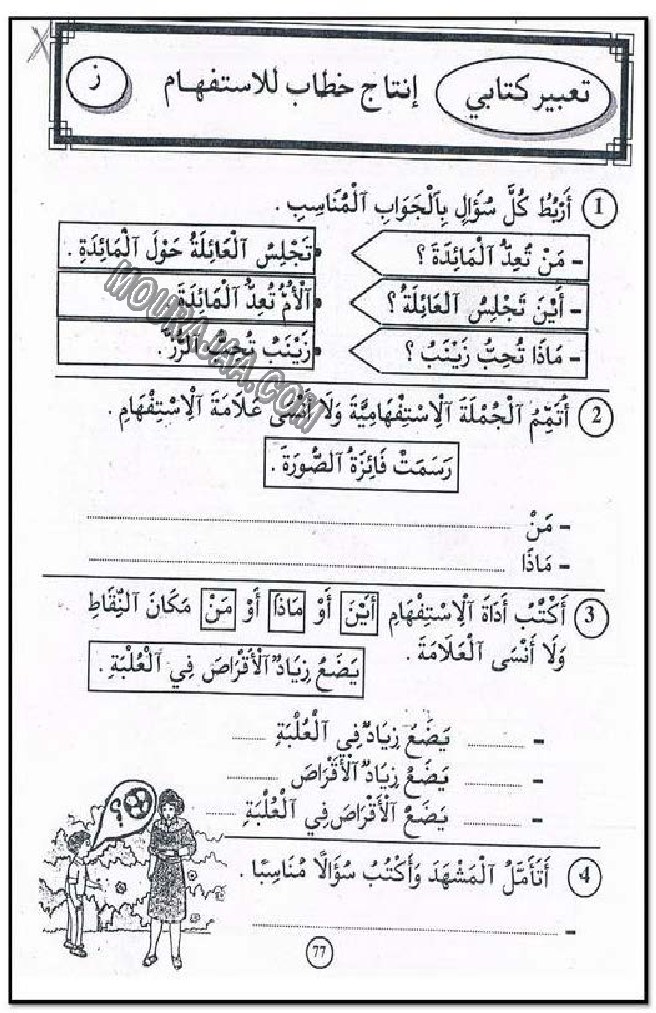 تعبير كتابي إنتاج خطاب للاستفهام ز
1 أَرْبُطُ كُلَّ سُؤَالٍ بِٱلْجَوَابِ ٱلْمُنَاسِبِ .
- مَنْ تُعِدُّ ٱلْمَائِدَةَ ؟ تَجْلِسُ ٱلْعَائِلَةُ حَوْلَ ٱلْمَائِدَةِ .
- أَيْنَ تَجْلِسُ ٱلْعَائِلَةُ ؟ ٱلْأُمُّ تُعِدُّ ٱلْمَائِدَةَ
- مَاذَا تُحِبُّ زَيْنَبُ ؟ زَيْنَبُ تُحِبُّ ٱلرُّزَّ .
MOURAJAA.COM
2 أُتَمِّمُ ٱلْجُمْلَةَ ٱلْاِسْتِفْهَامِيَّةَ وَلَا أَنْسَى عَلَامَةَ ٱلْاِسْتِفْهَامِ .
رَسَمَتْ فَائِزَةُ ٱلصُّورَةَ .
- مَنْ ..........
- مَاذَا ..........
3 أَكْتُبُ أَدَاةَ ٱلْاِسْتِفْهَامِ أَيْنَ أَوْ مَاذَا أَوْ مَنْ مَكَانَ ٱلنِّقَاطِ
وَلَا أَنْسَى ٱلْعَلَامَةَ .
يَضَعُ زِيَادٌ ٱلْأَقْرَاصَ فِي ٱلْعُلْبَةِ .
- .......... يَضَعُ زِيَادٌ فِي ٱلْعُلْبَةِ ......
- .......... يَضَعُ زِيَادٌ ٱلْأَقْرَاصَ ......
- .......... يَضَعُ ٱلْأَقْرَاصَ فِي ٱلْعُلْبَةِ ......
؟
4 أَتَأَمَّلُ ٱلْمَشْهَدَ وَأَكْتُبُ سُؤَالًا مُنَاسِبًا .
- ..........
77